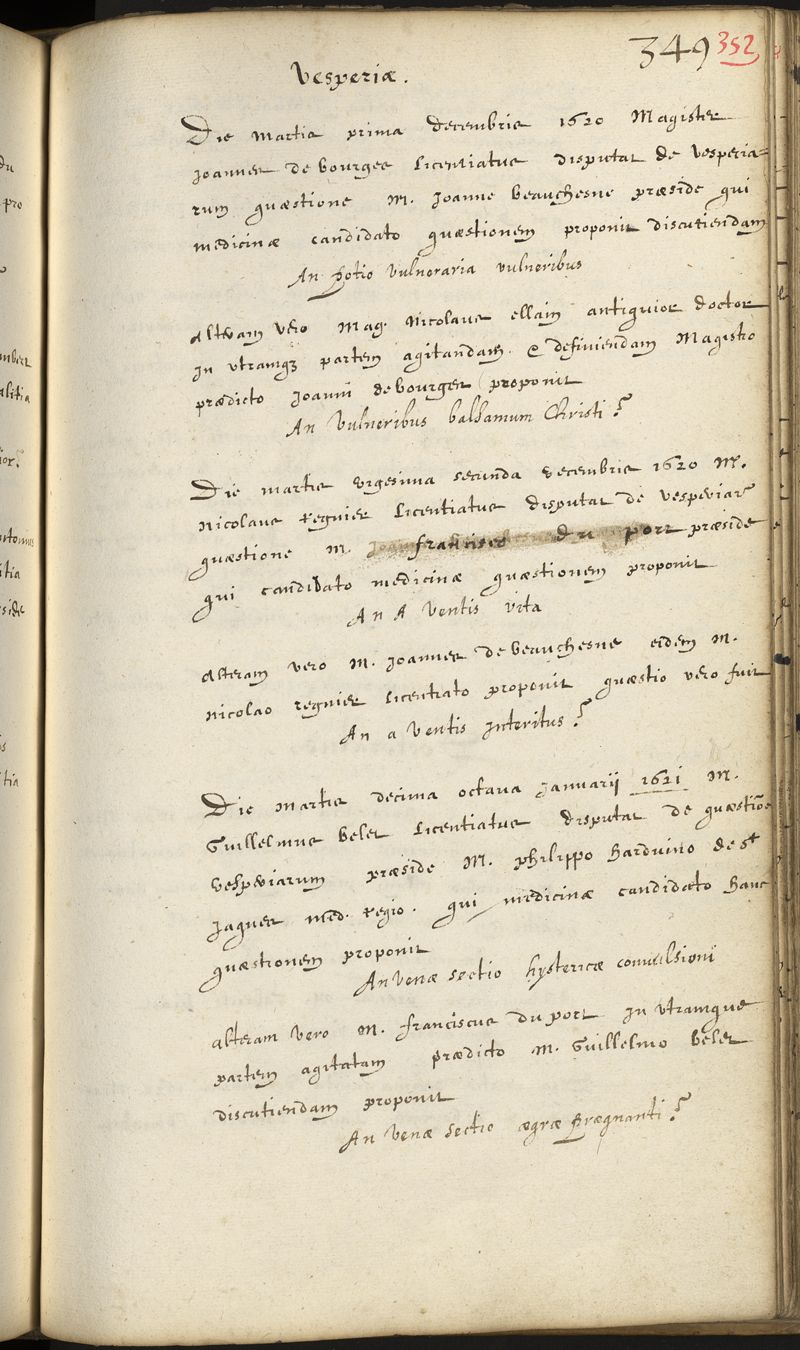 349 352
Vesperiæ.
Die martis prima decembris 1620 Magister
Joannes de bourges licentiatus disputat de vesperia-
rum quæstione M. Joanne beauchesne præside qui
medicinæ candidato quæstionem proponit discutiendam
An potio vulneraria vulneribus
Alteram vero Mag. Nicolaus ellain antiquior doctor
in utramqz partem agitandam & definiendam Magistro
prædicto Joanni de bourges proponit
An vulneribus balsamum Christi?
Die martis vigesima secunda decembris 1620 M.
Nicolaus regnier licentiatus disputat de vesperiar
quæstione M. francisco du port præside
qui candidato medicinæ quæstionem proponit
An A ventis vita
Alteram vero M. Joannes de beauchesne eidem M.
Nicolao regnier licentiato proponit quæstio vero fuit
An a ventis interitus?
Die martis decima octava Januarij 1621 M.
Guillelmus belet licentiatus disputat de quæstione
vesperiarum præside M. philippo harduino de st
Jaques med. regio. qui medicinæ candidato hanc
quæstionem proponit
An venæ sectio hystericæ convulsioni
alteram vero M. franciscus du port in utramque
partem agitatam prædicto M. Guillelmo belet
discutiendam proponit
An venæ sectio ægræ prægnanti?